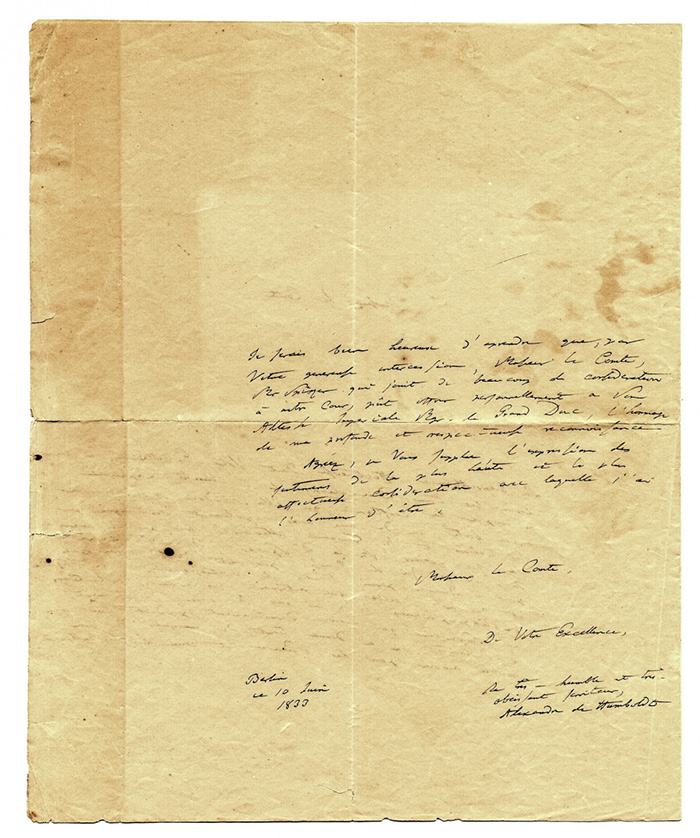 Je serais bien heureux d'apprendre que, par
Votre genereuse intercession, Monsieur le Comte,
Mr qui jouit de beaucoup de considération
à notre Cour, pût offrir personnellement à Son
Altesse Impériale Mgr. le Grand Duc, l'hommage
de ma profonde et respectueuse reconnaissance.
Agréez, je Vous supplie, l'expression des
sentimens de la plus haute et la plus
affectueuse considération avec laquelle j'ai
l'honneur d'être,
Monsieur le Comte,
De Votre Excellence,
le très-humble et très-
obéissant serviteur,
Alexandre de Humboldt
Berlin
ce 10 Juin
1833